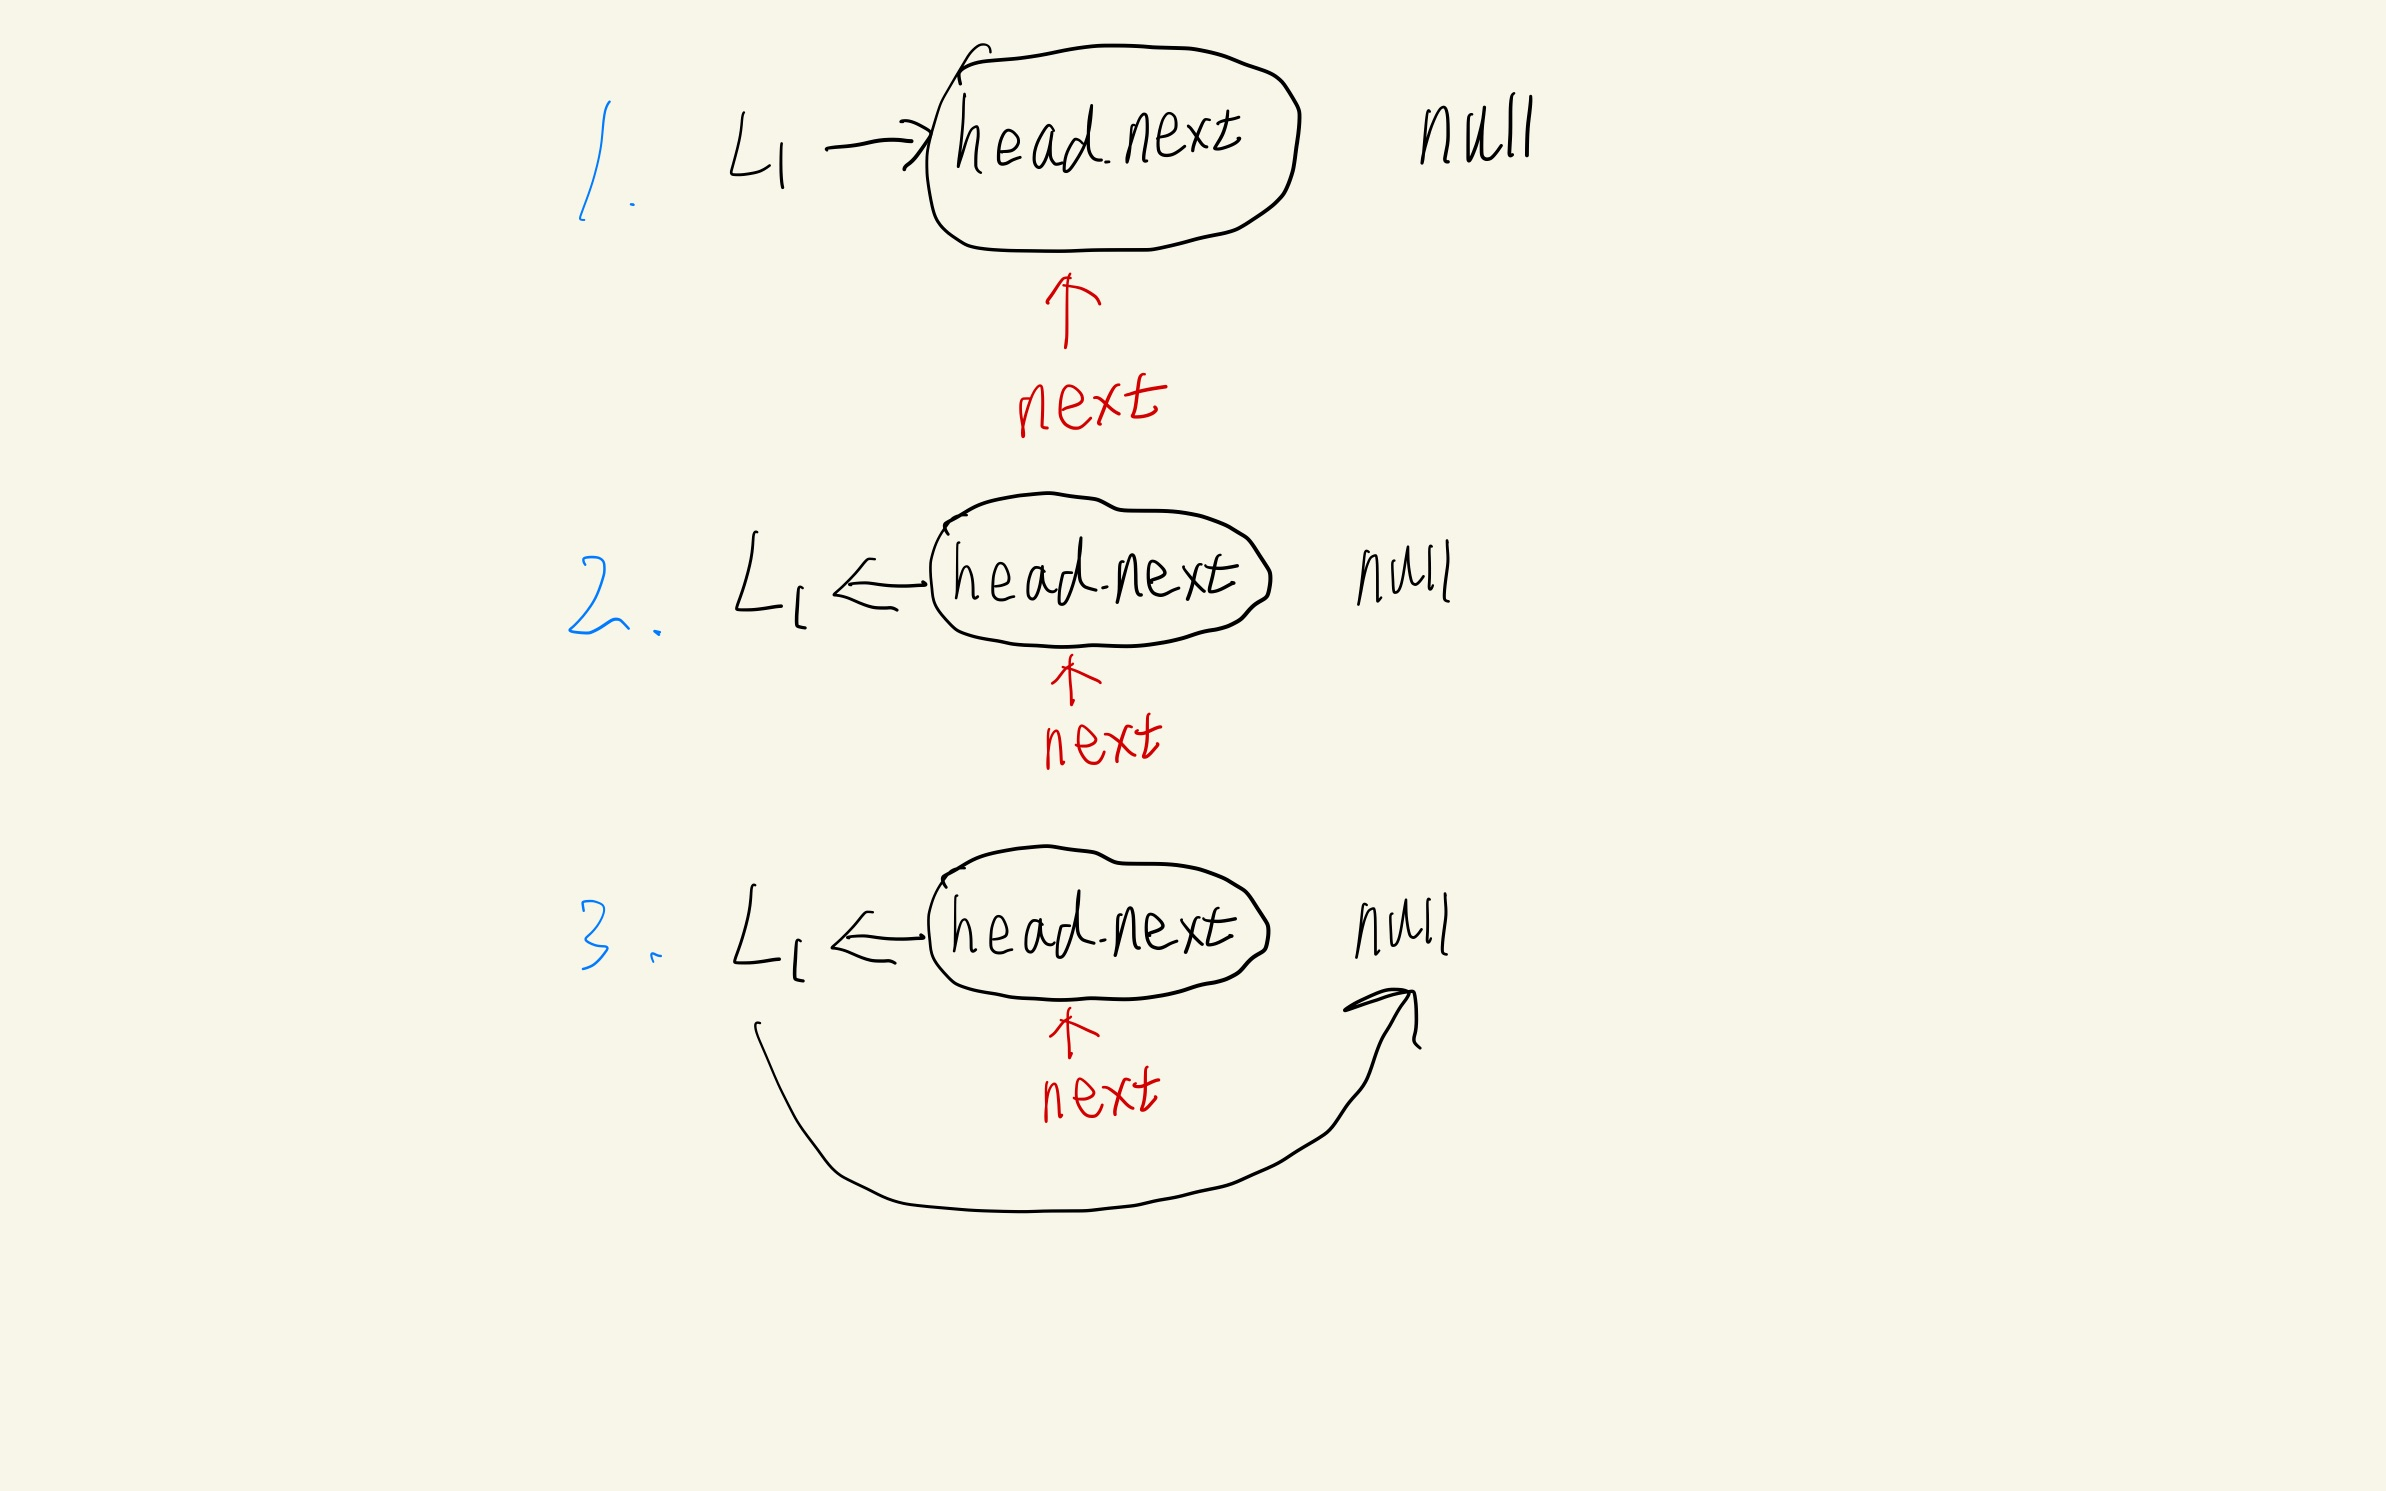 1. L1 head.next null
next
2. L1 head.next null
next
3. L1 head.next null
next